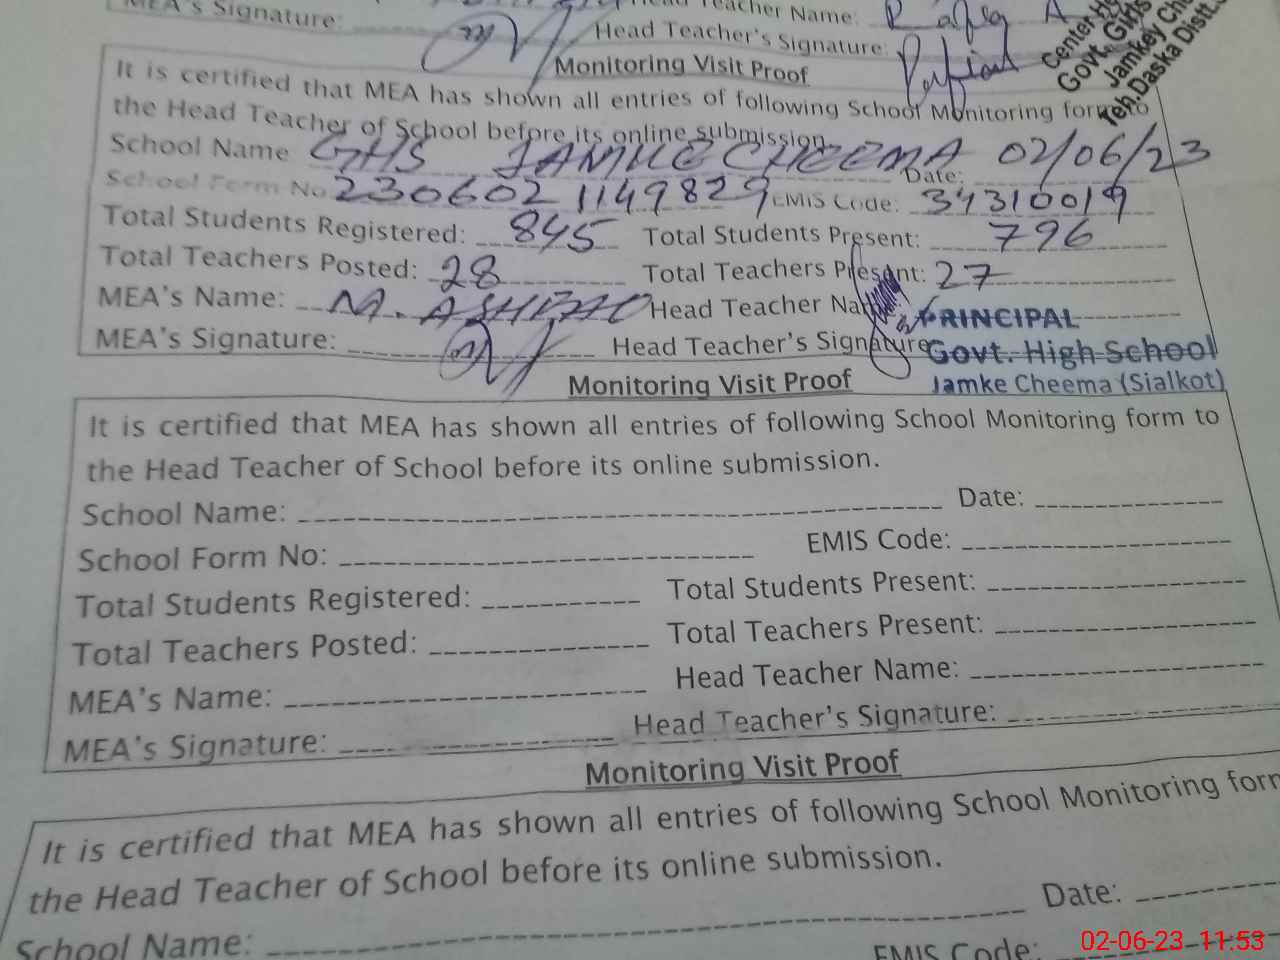 MEA's Signature: Head Teacher Name:
Head Teacher's Signature:
Center
Govt. Girls
Jamkey
Teh. Daska Distt.
Monitoring Visit Proof
It is certified that MEA has shown all entries of following School Monitoring form to
the Head Teacher of School before its online submission.
School Name GHS JAMKE CHEEMA Date: 02/06/23
School Form No 2306021149829 EMIS Code: 34310019
Total Students Registered: 845 Total Students Present: 796
Total Teachers Posted: 28 Total Teachers Present: 27
MEA's Name: M. Head Teacher
MEA's Signature: Head Teacher's Signature
PRINCIPAL
Govt. High School
Jamke Cheema (Sialkot)
Monitoring Visit Proof
It is certified that MEA has shown all entries of following School Monitoring form to
the Head Teacher of School before its online submission.
School Name: Date:
School Form No: EMIS Code:
Total Students Registered: Total Students Present:
Total Teachers Posted: Total Teachers Present:
MEA's Name: Head Teacher Name:
MEA's Signature: Head Teacher's Signature:
Monitoring Visit Proof
It is certified that MEA has shown all entries of following School Monitoring form
the Head Teacher of School before its online submission.
School Name: Date:
EMIS Code:
02-06-23 11:53